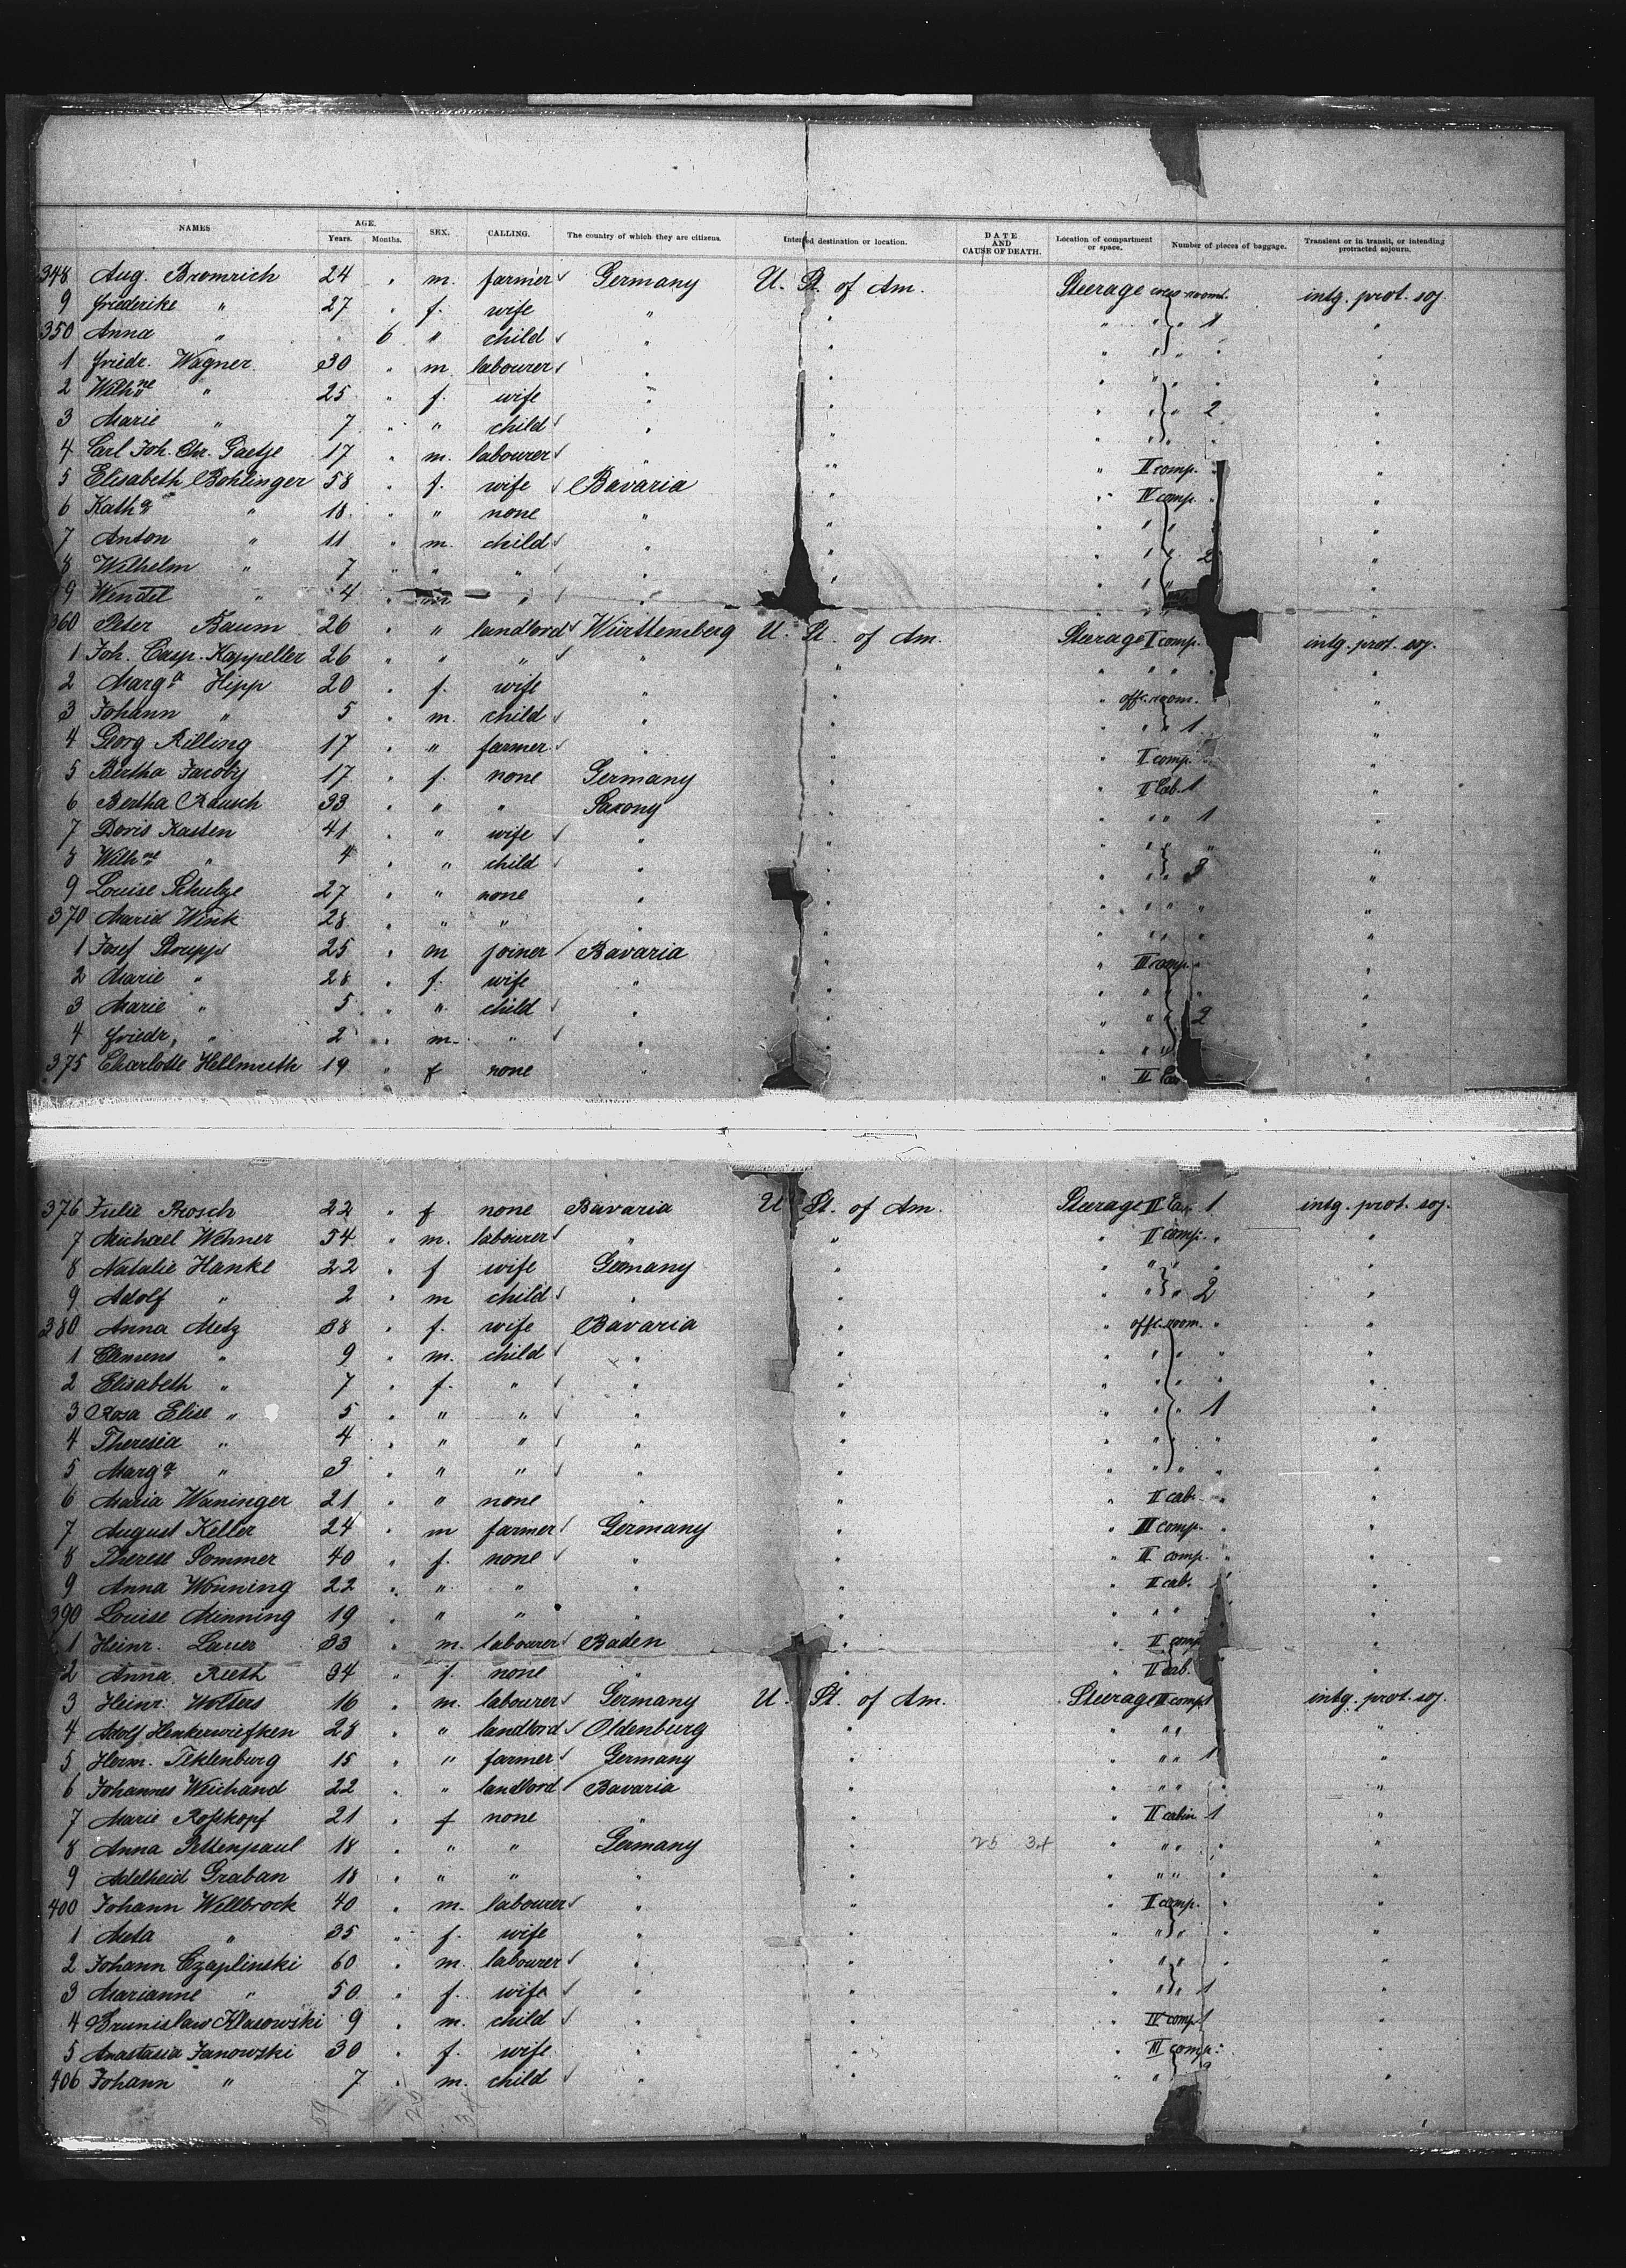 NAMES AGE. Years. Months. SEX. CALLING. The country of which they are citizens. Intended destination or location. DATE AND CAUSE OF DEATH. Location of compartment or space. Number of pieces of baggage. Transient or in transit, or intending protracted sojourn.
348 Aug. Bromrich 24 " m. farmer Germany U. St. of Am. Steerage room. intg. prot. soj.
9 Friederike " 27 " f. wife " " " " " 1 "
350 Anna " " 6 " child " " " " " "
1 Friedr. Wagner 30 " m. labourer " " " " " "
2 Wilhne " 25 " f. wife " " " " " 2 "
3 Marie " 7 " " child " " " " " "
4 Carl Joh. Chr. Gaetje 17 " m. labourer " " " II comp. "
5 Elisabeth Bohlinger 58 " f. wife Bavaria " " IV comp. " "
6 Katha " 18 " " none " " " " " "
7 Anton " 11 " m. child " " " " " 2 "
8 Wilhelm " 7 " " " " " " " " "
9 Wendel " 4 " m " " " " " "
360 Peter Baum 26 " " landlord Württemberg U. St. of Am. Steerage I comp. intg. prot. soj.
1 Joh. Casp. Kappeller 26 " " " " " " " " "
2 Marga Hipp 20 " f. wife " " " off. room. "
3 Johann " 5 " m. child " " " " " 1 "
4 Georg Rilling 17 " " farmer " " " I comp. "
5 Bertha Jacoby 17 " f. none Germany " " II Cab. 1 "
6 Bertha Rausch 33 " " " Saxony " " " " 1 "
7 Doris Kasten 41 " " wife " " " " " " "
8 Wilhne " 4 " " child " " " " " 3 "
9 Louise Schulze 27 " " none " " " " " " "
370 Maria Wink 28 " " " " " " " " " "
1 Josef Stoupp 25 " m joiner Bavaria " " III comp. " "
2 Marie " 28 " f. wife " " " " " " "
3 Marie " 5 " " child " " " " " 2 "
4 Friedr. " 2 " m. " " " " " " "
375 Charlotte Hellmuth 19 " f none " " " II "
376 Julie Rosch 22 " f none Bavaria U. St. of Am. Steerage II Cab 1 intg. prot. soj.
7 Michael Wehner 54 " m. labourer " " " II comp. " "
8 Natalie Hanke 22 " f wife Germany " " " " " "
9 Adolf " 2 " m child " " " " " 2 "
380 Anna Metz 38 " f. wife Bavaria " " off. room. " "
1 Clemens " 9 " m. child " " " " " " "
2 Elisabeth " 7 " f. " " " " " " " "
3 Rosa Elise " 5 " " " " " " " " 1 "
4 Theresia " 4 " " " " " " " " " "
5 Marga " 3 " " " " " " " " " "
6 Maria Waninger 21 " " none " " " II cab. " "
7 August Keller 24 " m farmer Germany " " III comp. " "
8 Therese Sommer 40 " f. none " " " II comp. " "
9 Anna Wonning 22 " " " " " " II cab. "
390 Louise Minning 19 " " " " " " " " "
1 Heinr. Lauer 33 " m. labourer Baden " " II comp "
2 Anna Rieth 34 " f. none " " " II cab. "
3 Heinr. Wolters 16 " m. labourer Germany U. St. of Am. Steerage II comp 1 intg. prot. soj.
4 Adolf Henkerwiefken 28 " " landlord Oldenburg " " " " "
5 Herm. Teklenburg 15 " " farmer Germany " " " " 1 "
6 Johannes Weichand 22 " " landlord Bavaria " " " " "
7 Marie Roßkopf 21 " f none " " " II cabin 1 "
8 Anna Pettenpaul 18 " " " Germany " 25 34 " " " " "
9 Adelheid Graban 18 " " " " " " " " " "
400 Johann Wellbrock 40 " m. labourer " " " II comp. " "
1 Meta " 35 " f. wife " " " " " " "
2 Johann Czaplinski 60 " m. labourer " " " " " " "
3 Marianne " 50 " f. wife " " " " " 1 "
4 Brunislaw Klasowski 9 " m. child " " " IV comp. 1 "
5 Anastasia Janowski 30 " f. wife " " " III comp. "
406 Johann " 7 " m. child " " " " "
59 25 34